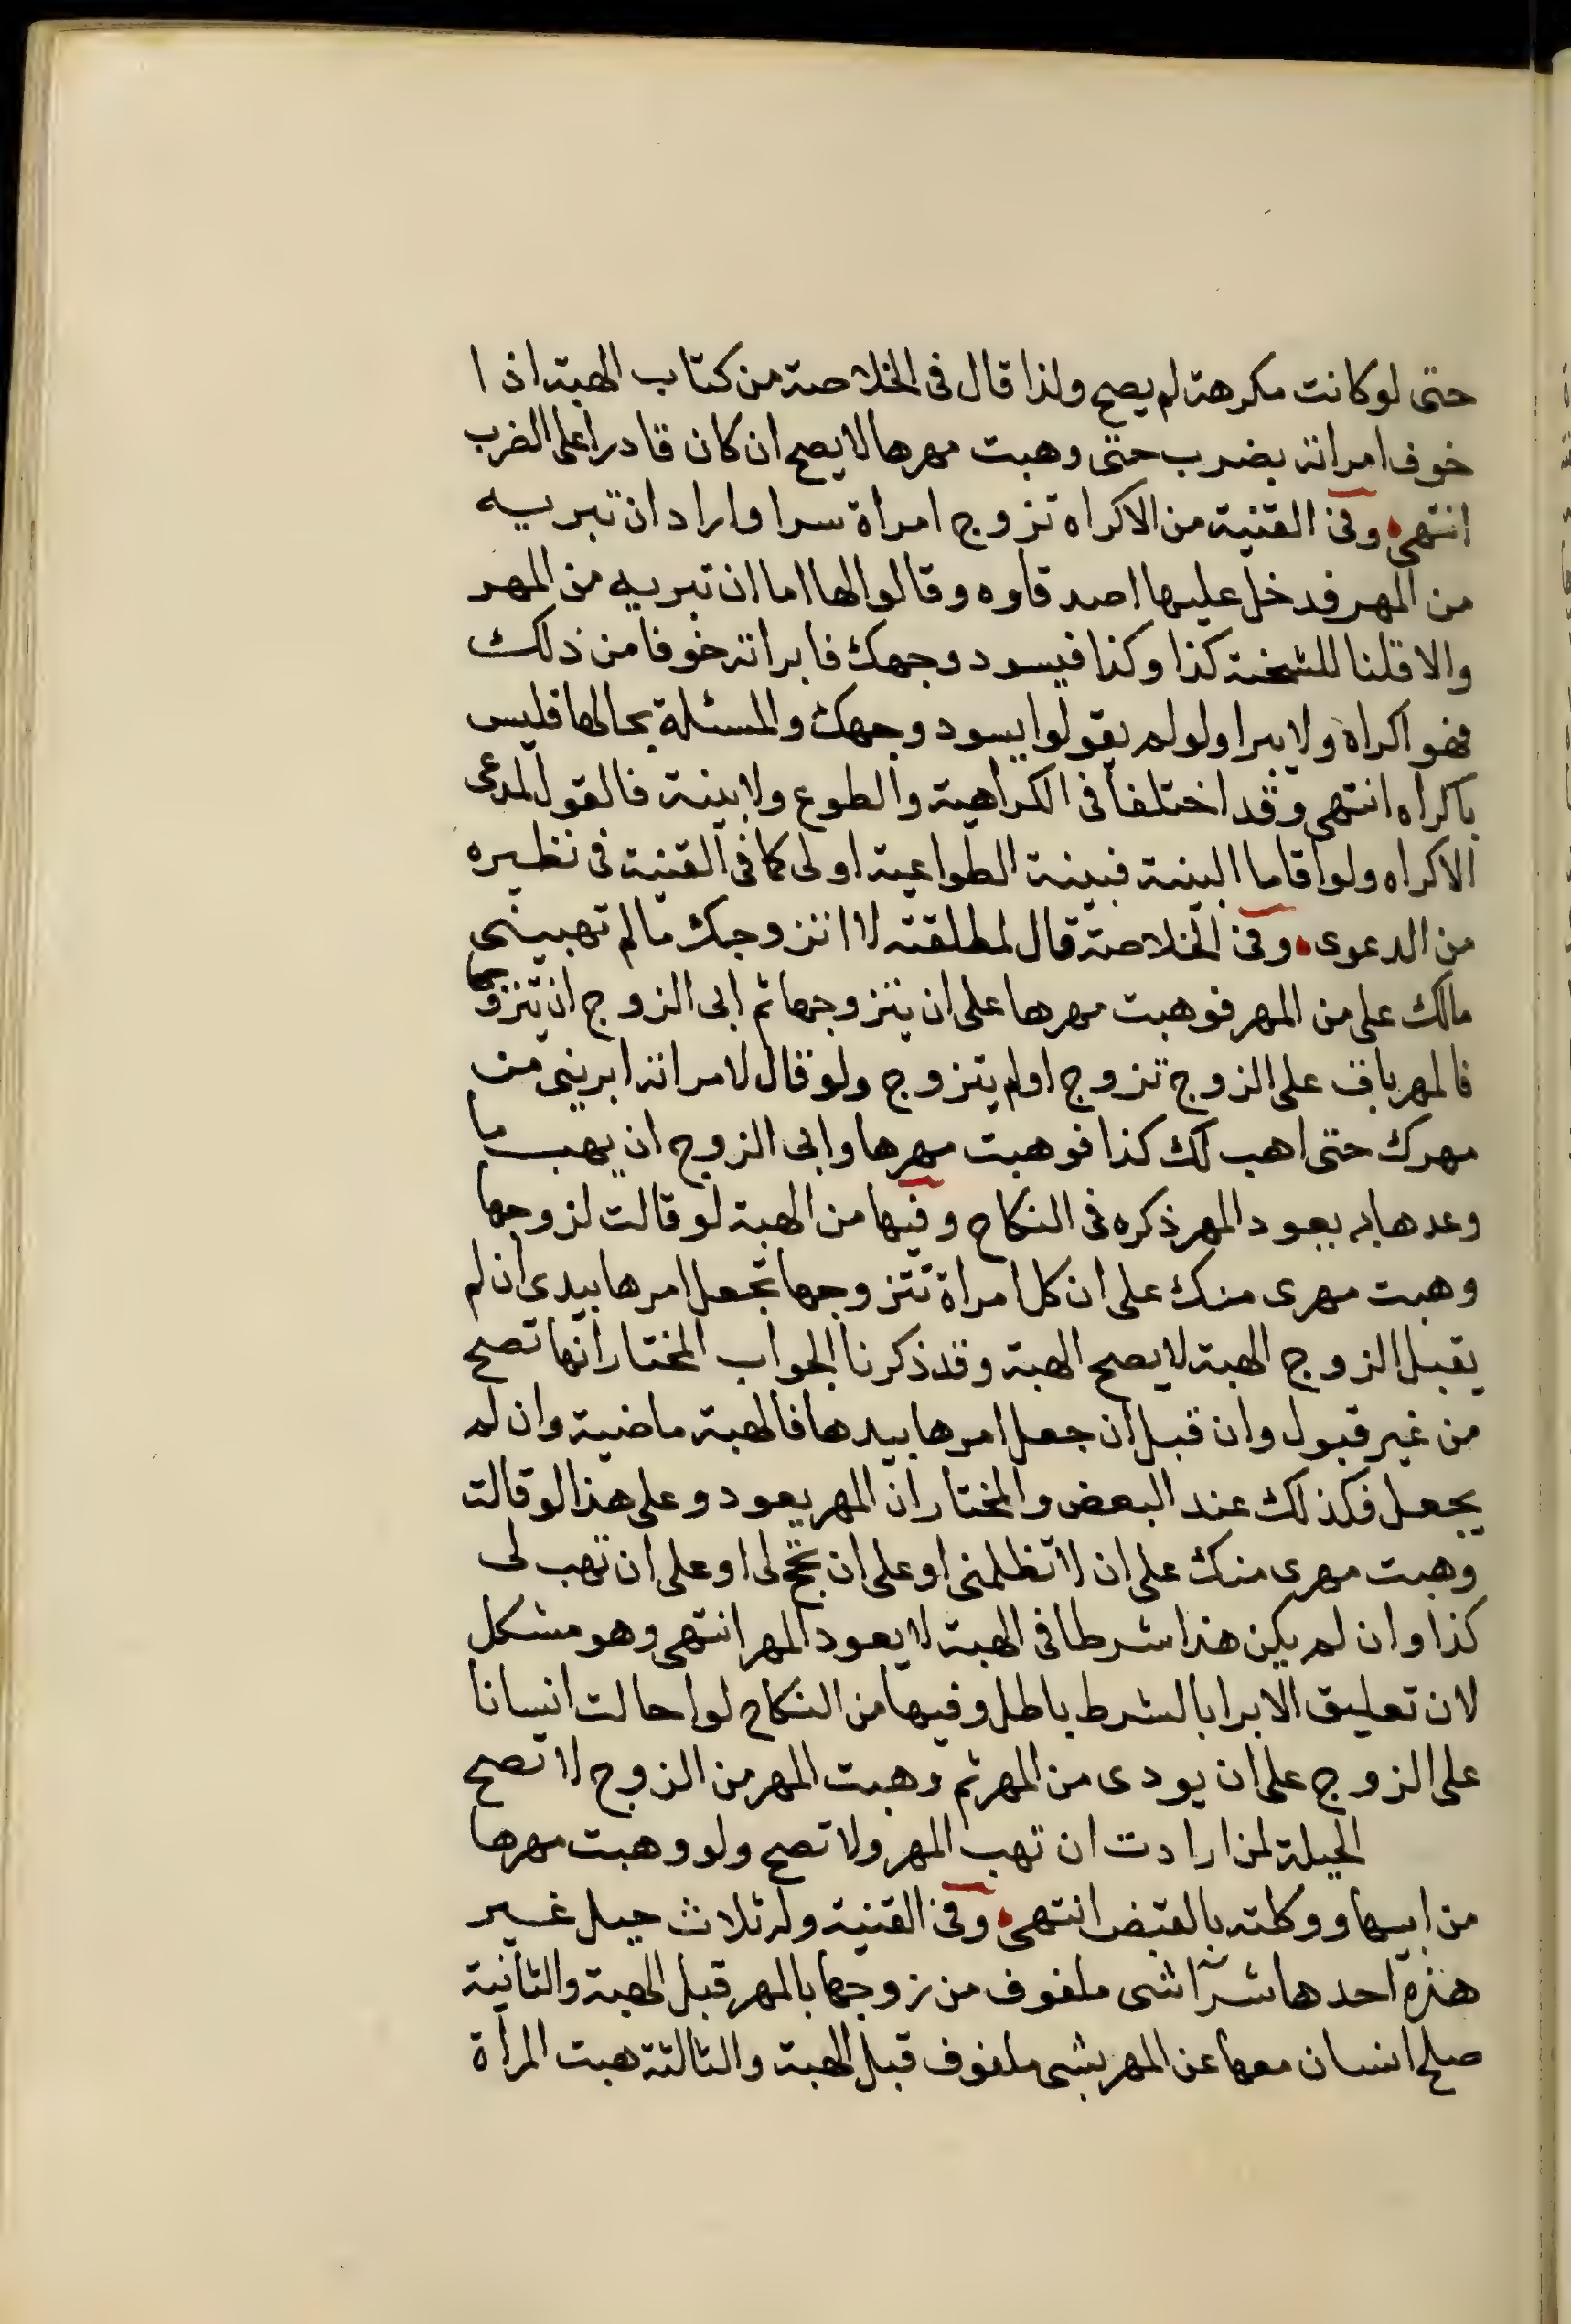 حتى لو كانت مكرهة لم يصح ولذا قال فى الخلاصة من كتاب الهبة اذا
خوف امراته بضرب حتى وهبت مهرها لا يصح ان كان قادرا على الضرب
انتهى وفى القنية من الاكراه تزوج امراة سرا واراد ان تبريه
من المهر فدخل عليها اصدقاوه وقالوا لها اما ان تبريه من المهر
والا قلنا للشحنة كذا وكذا فيسود وجهك فابراته خوفا من ذلك
فهو اكراه ولا يبرا ولو لم يقولوا يسود وجهك والمسئلة بحالها فليس
باكراه انتهى وقد اختلفا فى الكراهية والطوع ولا بينة فالقول لمدعى
الاكراه ولو اقاما البينة فبينة الطواعية اولى كما فى القنية فى نظيره
من الدعوى وفى الخلاصة قال لمطلقته لا اتزوجك مالم تهبينى
مالك على من المهر فوهبت مهرها على ان يتزوجها ثم ابى الزوج ان يتزوجها
فالمهر باق على الزوج تزوج اولم يتزوج ولو قال لامراته ابرينى من
مهرك حتى اهب لك كذا فوهبت مهرها وابى الزوج ان يهب ما
وعدها به يعود المهر ذكره فى النكاح وفيها من الهبة لو قالت لزوجها
وهبت مهرى منك على ان كل امراة تتزوجها تجعل امرها بيدى ان لم
يقبل الزوج الهبة لا يصح الهبة وقد ذكرنا الجواب المختار انها تصح
من غير قبول وان قبل ان جعل امرها بيدها فالهبة ماضية وان لم
يجعل فكذلك عند البعض والمختار ان المهر يعود وعلى هذا لو قالت
وهبت مهرى منك على ان لا تظلمنى او على ان تحج لى او على ان تهب لى
كذا وان لم يكن هذا شرطا فى الهبة لا يعود المهر انتهى وهو مشكل
لان تعليق الابرا بالشرط باطل وفيها من النكاح لو احالت انسانا
على الزوج على ان يودى من المهر ثم وهبت المهر من الزوج لا تصح
الحيلة لمن ارادت ان تهب المهر ولا تصح ولو وهبت مهرها
من ابيها ووكلته بالقبض انتهى وفى القنية وله ثلاث حيل غير
هذه احدها شرا شى ملفوف من زوجها بالمهر قبل الهبة والثانية
صلح انسان معها عن المهر بشى ملفوف قبل الهبة والثالثة هبت المراة